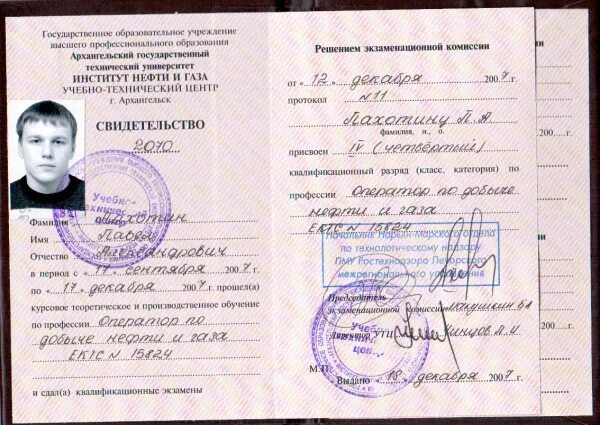 Государственное образовательное учреждение
высшего профессионального образования
Архангельский государственный
технический университет
ИНСТИТУТ НЕФТИ И ГАЗА
УЧЕБНО-ТЕХНИЧЕСКИЙ ЦЕНТР
г. Архангельск
СВИДЕТЕЛЬСТВО
2070
Фамилия Пахотин
Имя Павел
Отчество Александрович
в период с « 11 » сентября 2007 г.
по « 17 » декабря 2007 г. прошел(а)
курсовое теоретическое и производственное обучение
по профессии Оператор по
добыче нефти и газа
ЕКТС N 15824
и сдал(а) квалификационные экзамены
Решением экзаменационной комиссии
от « 12 » декабря 2007 г.
протокол N 11
Пахотину П. А.
фамилия, и., о.
присвоен IV (четвёртый)
квалификационный разряд (класс, категория) по
профессии Оператор по добыче
нефти и газа
ЕКТС N 15824
Начальник Нарьян-Марского отдела
по технологическому надзору
ПМУ Ростехнадзора Печорского
межрегионального управления
Председатель
экзаменационной комиссии
Директор УТЦ
Учебно-
технический
центр
М.П.
Выдано « 18 » декабря 2007 г.